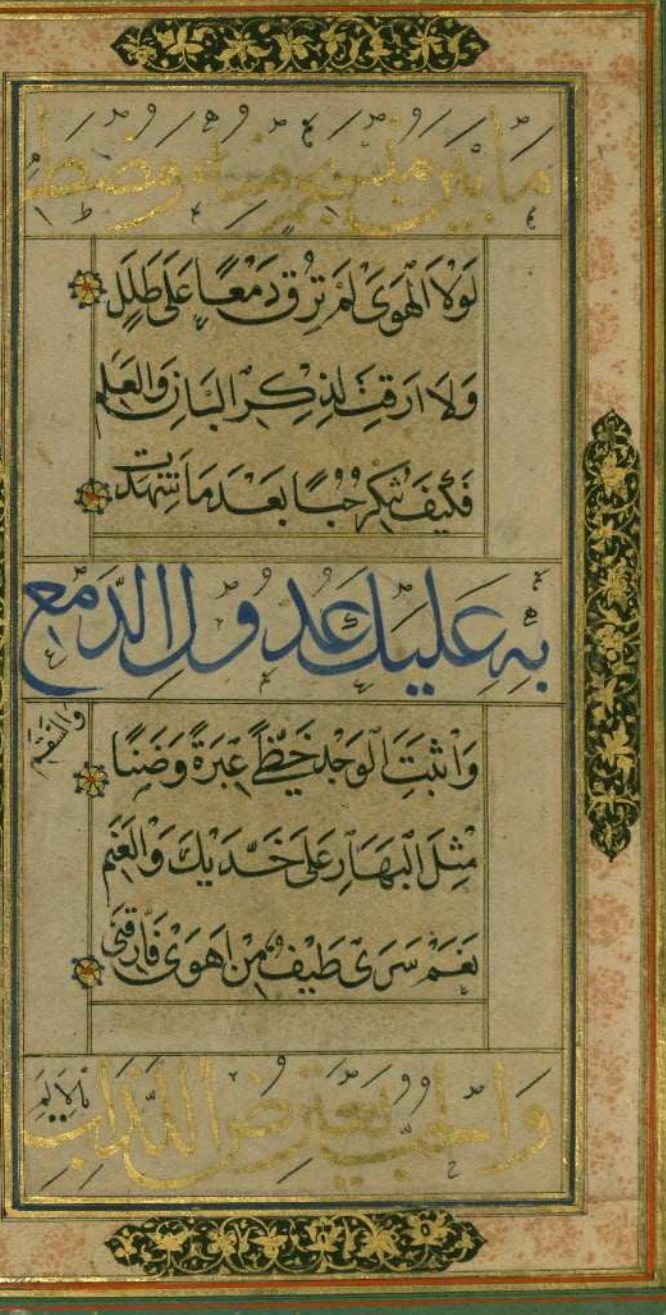 مَا بَيْنَ مُنْسَجِمٍ مِنْهُ وَمُضْطَرِمِ
لَوْلَا الْهَوَىٰ لَمْ تُرِقْ دَمْعًا عَلَىٰ طَلَلٍ
وَلَا اَرِقْتَ لِذِكْرِ الْبَانِ وَالْعَلَمِ
فَكَيْفَ تُنْكِرُ حُبًّا بَعْدَ مَا شَهِدَتْ
بِهِ عَلَيْكَ عُدُولُ الدَّمْعِ
وَالسَّقَمِ
وَاَثْبَتَ الْوَجْدُ خَطَّيْ عَبْرَةٍ وَضَنًا
مِثْلَ الْبَهَارِ عَلَىٰ خَدَّيْكَ وَالْعَنَمِ
نَعَمْ سَرَىٰ طَيْفُ مَنْ اَهْوَىٰ فَاَرَّقَنِي
وَالْحُبُّ يَعْتَرِضُ اللَّذَّاتِ
بِالْاَلَمِ